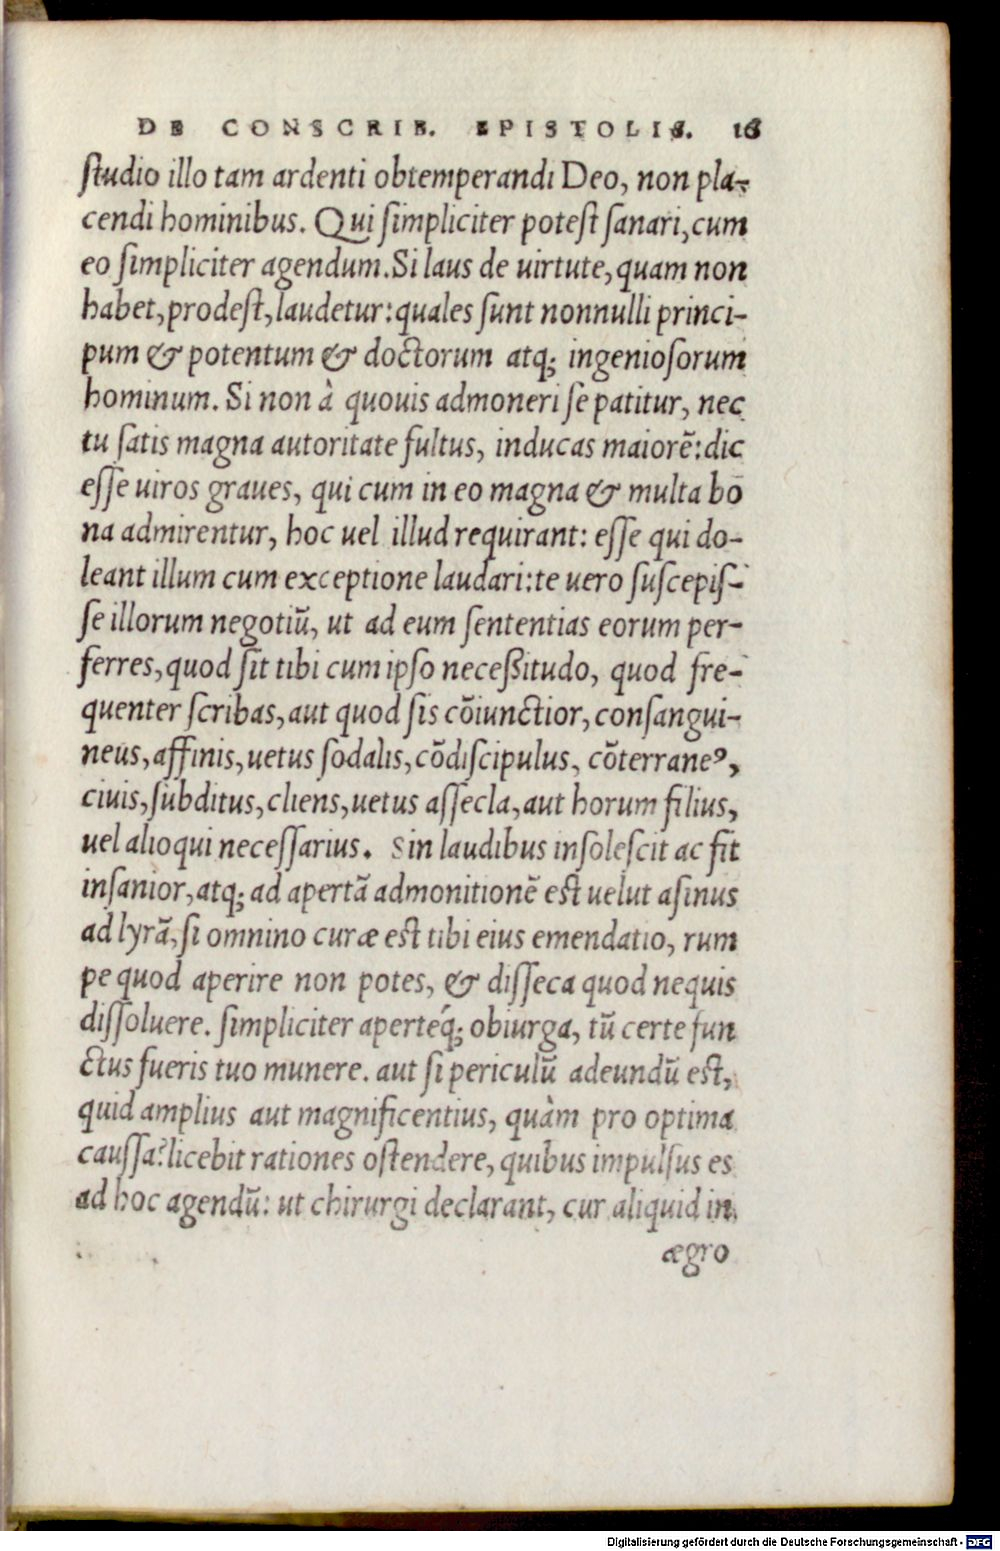 DE CONSCRIB. EPISTOLIS. 16
ſtudio illo tam ardenti obtemperandi Deo, non pla-
cendi hominibus. Qui ſimpliciter poteſt ſanari, cum
eo ſimpliciter agendum. Si laus de uirtute, quam non
habet, prodeſt, laudetur: quales ſunt nonnulli princi-
pum & potentum & doctorum atq; ingenioſorum
hominum. Si non à quouis admoneri ſe patitur, nec
tu ſatis magna autoritate fultus, inducas maiorē: dic
eſſe uiros graues, qui cum in eo magna & multa bo
na admirentur, hoc uel illud requirant: eſſe qui do-
leant illum cum exceptione laudari: te uero ſuſcepiſ-
ſe illorum negotiū, ut ad eum ſententias eorum per-
ferres, quod ſit tibi cum ipſo neceßitudo, quod fre-
quenter ſcribas, aut quod ſis cōiunctior, conſangui-
neus, affinis, uetus ſodalis, cōdiſcipulus, cōterraneꝰ,
ciuis, ſubditus, cliens, uetus aſſecla, aut horum filius,
uel alioqui neceſſarius. Sin laudibus inſoleſcit ac fit
inſanior, atq; ad apertā admonitionē eſt uelut aſinus
ad lyrā, ſi omnino curæ eſt tibi eius emendatio, rum
pe quod aperire non potes, & diſſeca quod nequis
diſſoluere. ſimpliciter aperteq́; obiurga, tū certe fun
ctus fueris tuo munere. aut ſi periculū adeundū eſt,
quid amplius aut magnificentius, quàm pro optima
cauſſa? licebit rationes oſtendere, quibus impulſus es
ad hoc agendū: ut chirurgi declarant, cur aliquid in
ægro
Digitalisierung gefördert durch die Deutsche Forschungsgemeinschaft - DFG